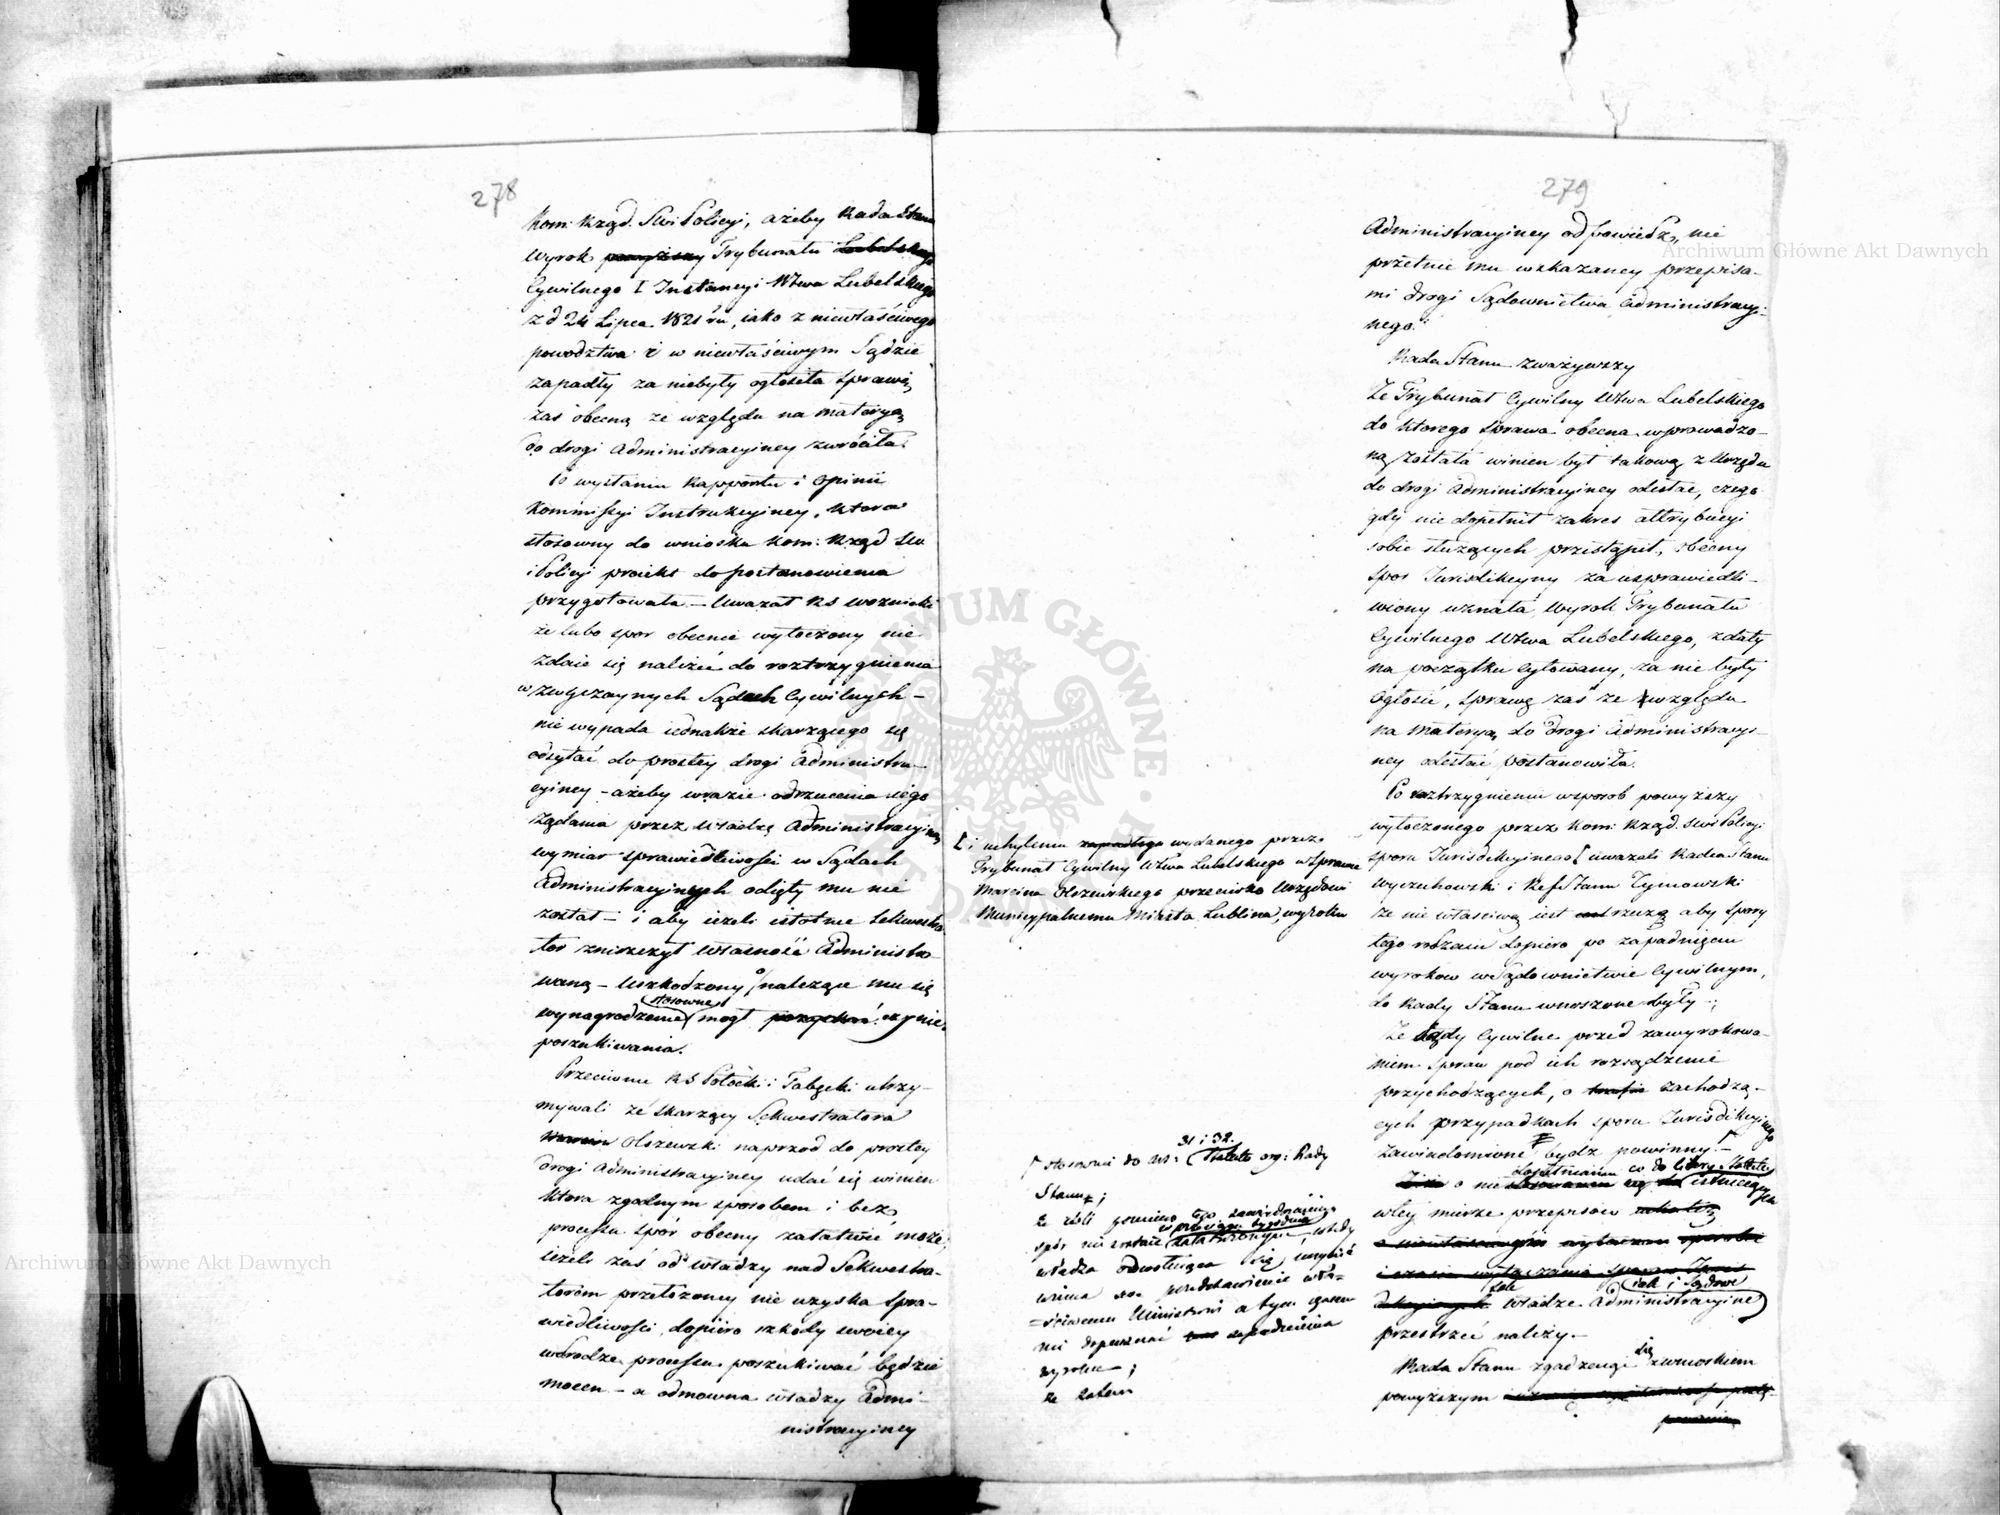 278
Kom: Rząd. S.W. i Policyi, ażeby Rada Stanu
wyrok powyższy Trybunału Lubelskiego
Cywilnego I Instancyi Wtwa Lubelskiego
z d 24 Lipca 1821 ru, iako z niewłaściwego
powodztwa i w niewłaściwym Sądzie
zapadły za niebyły ogłosiła sprawę
zas obecną ze względu na materyą
do drogi Administracyiney zwróciła.
Po wysłaniu Rapportu i Opinii
Kommissyi Instrukcyiney, która
stosowny do wniosku Kom: Rząd Sw
i Policyi proiekt do postanowienia
przygotowała – Uważał RS Woznicki
że lubo spor obecnie wytoczony nie
zdaie się należeć do roztrzygnienia
w zwyczaynych Sądach Cywilnych –
nie wypada iednakże skarzącego się
odsyłać do prostey drogi Administra-
cyiney – ażeby w razie odrzucenia iego
żądania przez władzę Administracyiną
wymiar sprawiedliwości w Sądach
Administracyinych odięty mu nie
został – i aby ieżeli istotnie Sekwestra-
tor zniszczył własność Administro-
waną – uszkodzony o należące mu się
stosowne
wynagrodzenie mogł czynić
poszukiwania.
Przeciwnie RS Potocki i Tabęcki utrzy-
mywali że skarzący Sekwestratora
Olszewski naprzod do prostey
drogi Administracyiney udać się winien
która zgodnym sposobem i bez
processu spór obecny załatwić może,
ieżeli zaś od władzy nad Sekwestra-
torem przełożoney nie uzyska spra-
wiedliwości, dopiero szkody swoiey
w drodze processu poszukiwać będzie
mocen – a odmowna władzy Admi-
nistracyiney
279
Administracyiney odpowiedz, nie
przetnie mu wskazaney przepisa-
mi drogi Sądownictwa Administracyi-
nego.
Rada Stanu zważywszy
Że Trybunał Cywilny Wtwa Lubelskiego
do ktorego sprawa obecna wprowadzo-
ną została winien był takową z Urzędu
do drogi Administracyiney odesłać, czego
gdy nie dopełnił zakres attrybucyi
sobie służących przestąpił, obecny
spor Jurisdikcyiny za usprawiedli-
wiony uznała, wyrok Trybunału
Cywilnego Wtwa Lubelskiego, z daty
na początku cytowany, za nie były
ogłosić, sprawę zaś ze względu
na materyą do drogi Administracyi-
ney odesłać postanowiła.
Po roztrzygnieniu w sposob powyższy
wytoczonego przez Kom: Rząd. Sw i Policyi
sporu Jurisdikcyinego uważali Radca Stanu
Wyczechowski i Ref Stanu Tymowski
że nie właściwą iest rzeczą aby spory
tego rodzaiu dopiero po zapadnięciu
wyrokow w Sądownictwie Cywilnym,
do Rady Stanu wnoszone były –;
Że Sądy Cywilne przed zawyrokowa-
niem spraw pod ich rozsądzenie
przychodzących, o zachodzą-
cych przypadkach sporu Jurisdikcyinego
zawiadomione bydz powinny –
dopełnianiu co do litery
o nie istniejących
w tey mierze przepisow
tak i Sądowe
władze Administracyine
przestrzec należy. –
Rada Stanu zgadzaiąc się z wnioskiem
powyższym
i uchyleniu zapadłego wydanego przez
Trybunał Cywilny Wtwa Lubelskiego w sprawie
Marcina Olszewskiego przeciwko Urzędowi
Municypalnemu Miasta Lublina, wyroku
31 i 32.
stosownie do art: Statutu org: Rady
Stanu;
że ieśli pomimo tego zawiadomienia
w przeciągu tygodnia
spór nie zostaie wtedy
władza
winna przedstawienie wła-
=ściwemu Ministrowi a tym czasem
nie dopuszczać zapadnienia
wyroku –;
że zatem